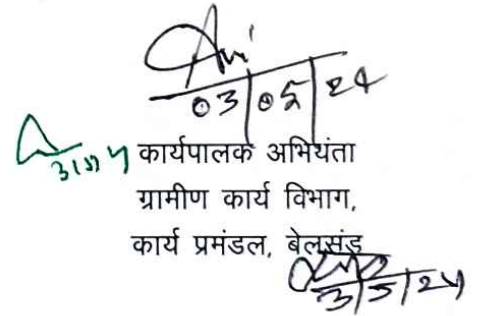 03/05/24
3/5/24
कार्यपालक अभियंता
ग्रामीण कार्य विभाग,
कार्य प्रमंडल, बेलसंड
3/5/24